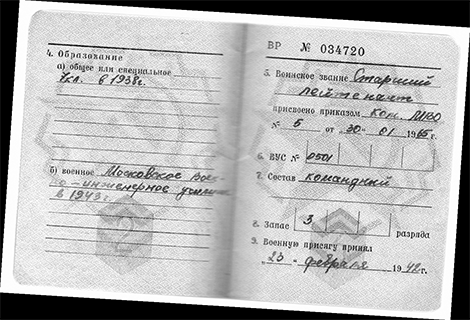 4. Образование
а) общее или специальное
7кл. в 1938г.
б) военное Московское воен-
но-инженерное училище
в 1943г.
ВР № 034720
5. Воинское звание Старший
лейтенант
присвоено приказом Ком. МВО
№ 5 от „30“ 01 1965г.
6. ВУС № 0501
7. Состав командный
8. Запас 3 разряда
9. Военную присягу принял
„23“ февраля 1942г.